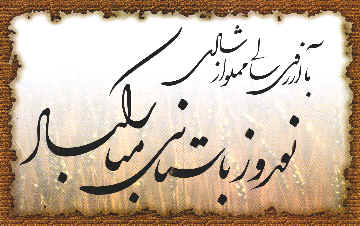 با آرزوی سالی مملو از شادی
نوروز باستانی مبارکباد